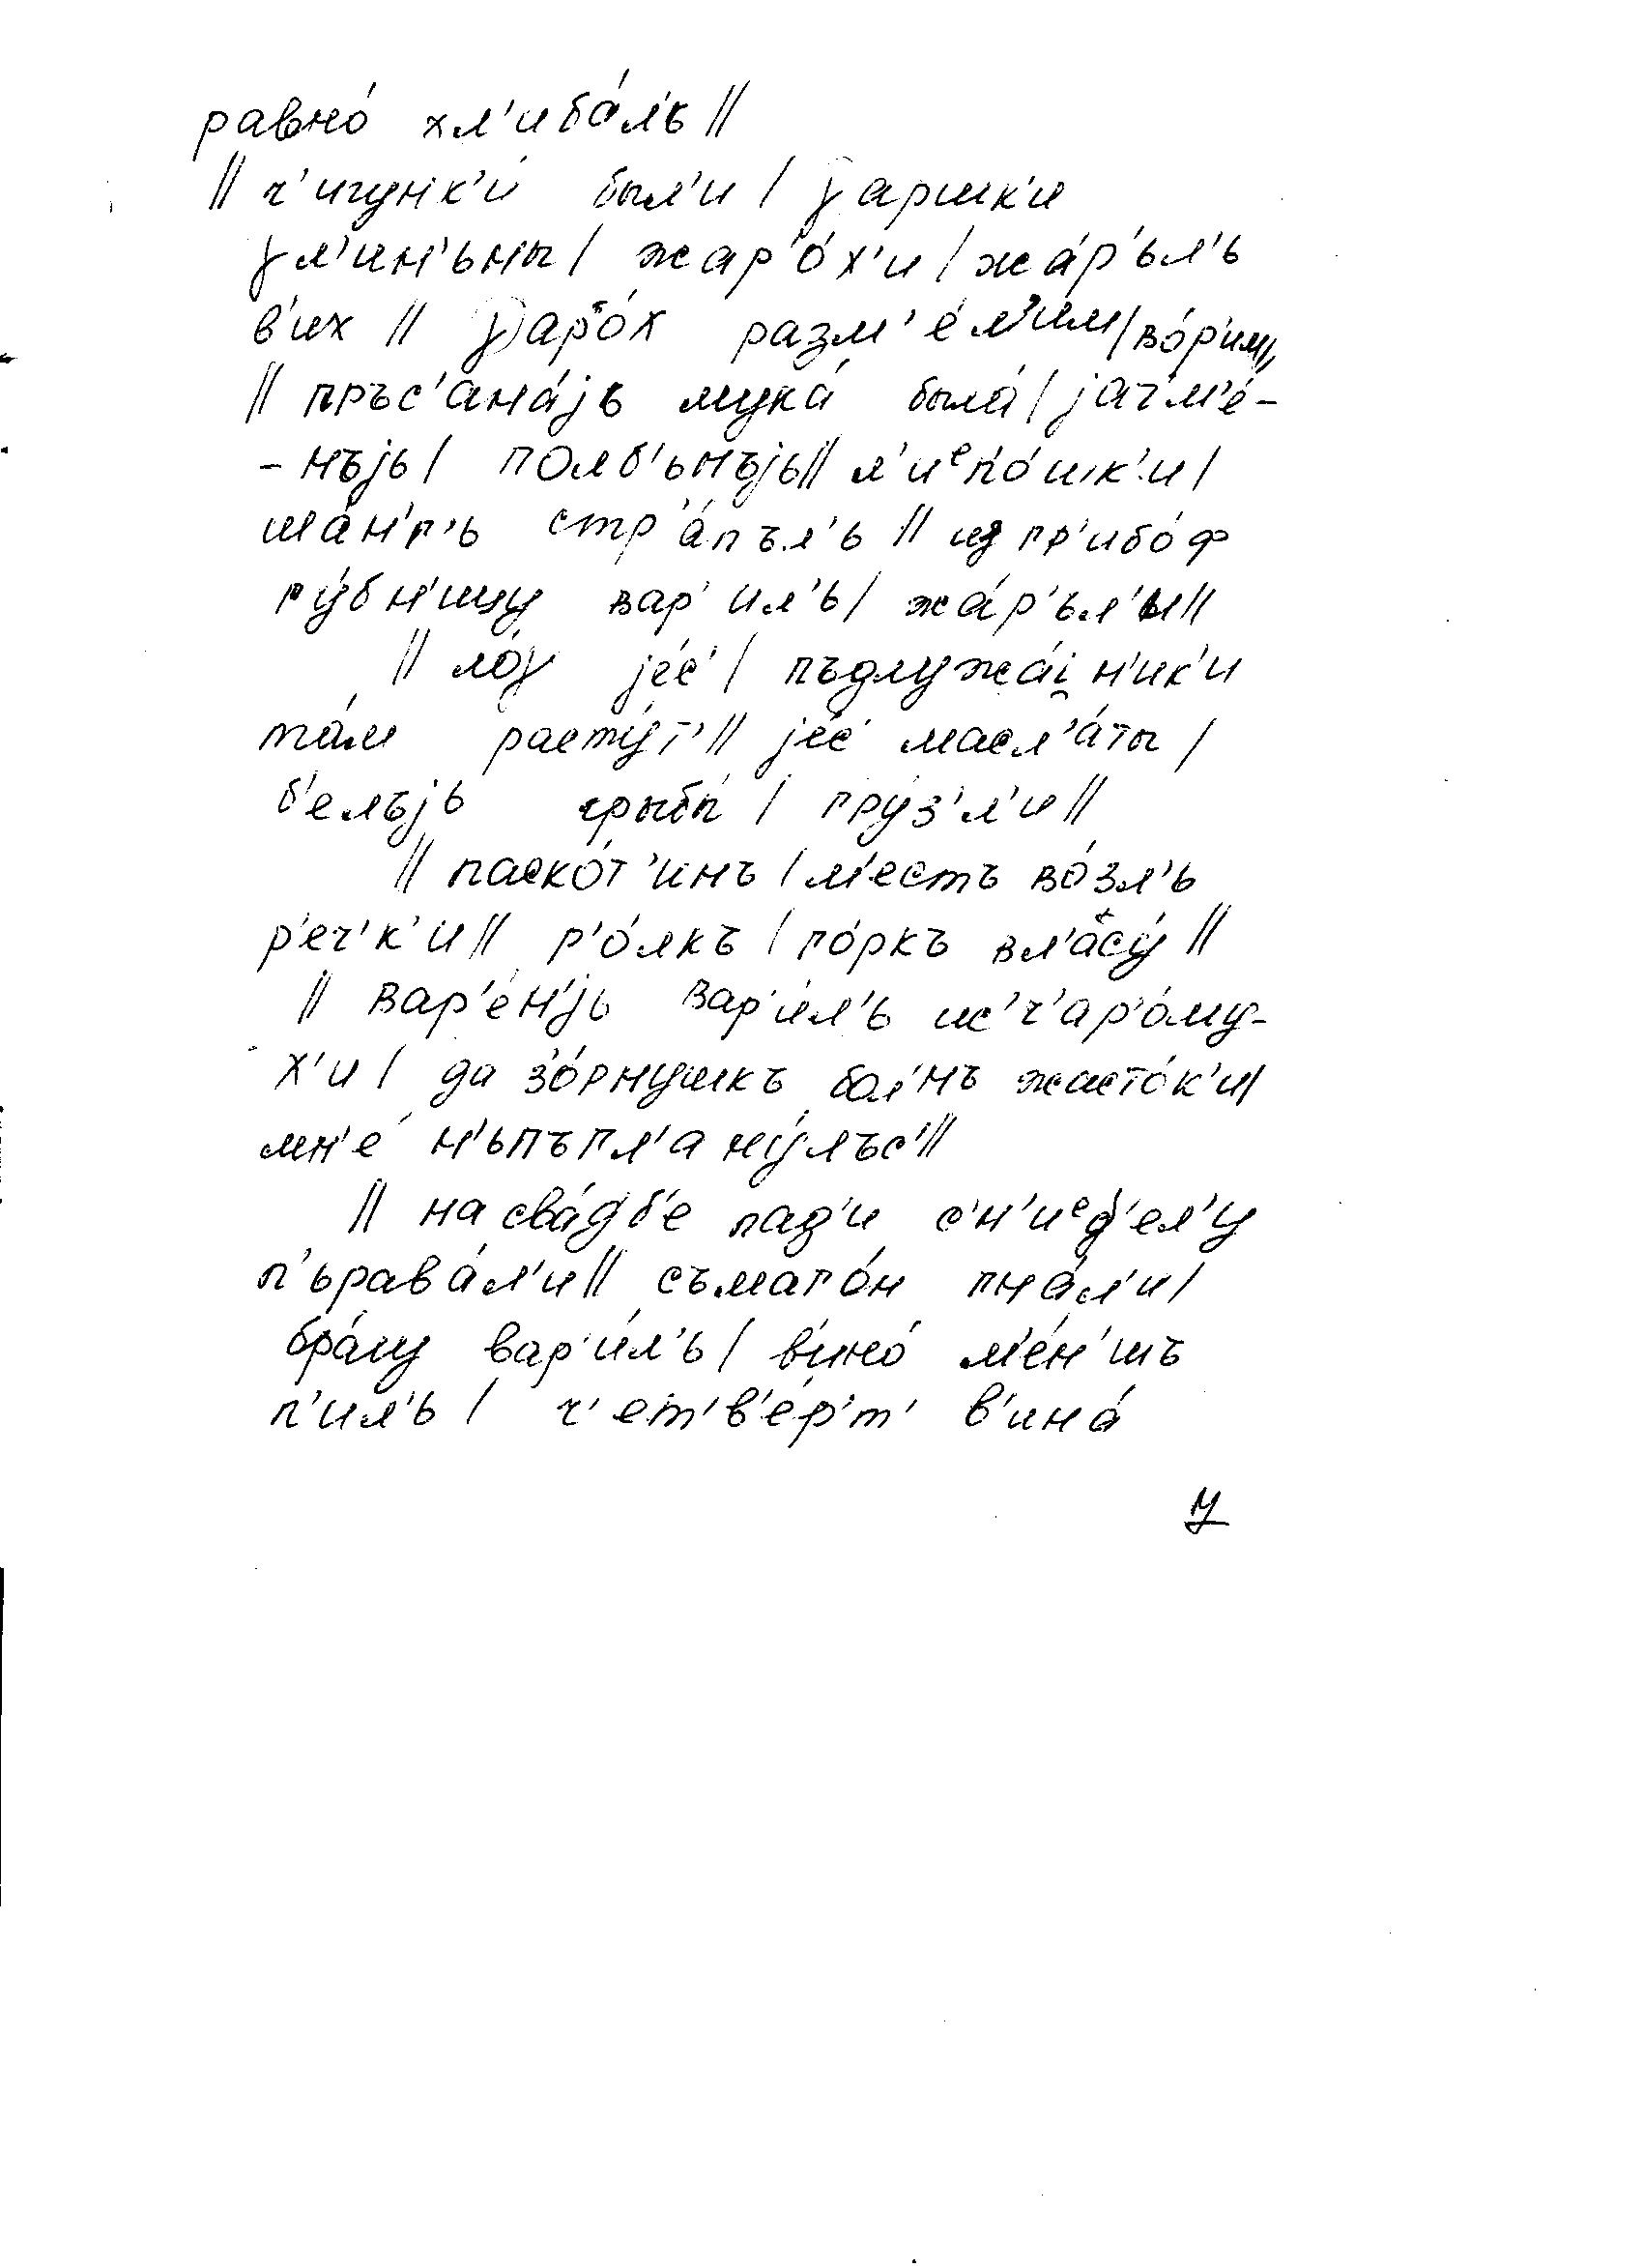 равно́ хл'иба́л'ь ||
|| ч'игунк'и́ был'и | γаршк'и
γл'ин'ьны | жар'о́х'и | жа́р'ьл'ь
в'их || γаро́х разм'е́л'им | во́р'им ||
|| пръс'ана́јь мука́ была́ | јачм'е́-
- нъјь | полб'ьнъјь || л'иᵉпо́шк'и |
ша́н'г'ь стр'а́пъл'ь || из гр'ибо́ф
гу́бн'ицу вар'ил'ь | жа́р'ьл'ы ||
|| ло́γ је́с' | пъдлужа́i̯н'ик'и
та́м расту́т' || је́с' масл'а́ты |
б'елъјь грыбы́ | гру́з'л'и ||
|| паско́т'инъ | м'естъ во́зл'ь
р'еч'к'и || р'о́лкъ | го́ркъ вл'асу́ ||
|| вар'е́н'јь вар'и́л'ь ис'ч'ар'о́му-
х'и | да з'о́рнушкъ бол'нъ жасто́к'и |
мн'е́ н'ьпъгл'ану́лъс' ||
|| на сва́д'б'е пад'и с'н'иᵉд'ел'у
п'ърава́л'и || съмаго́н гна́л'и |
бра́гу вар'и́л'ь | в'ино́ м'е́н'шъ
п'ил'ь | ч'ет'в'е́р'т' в'ина́